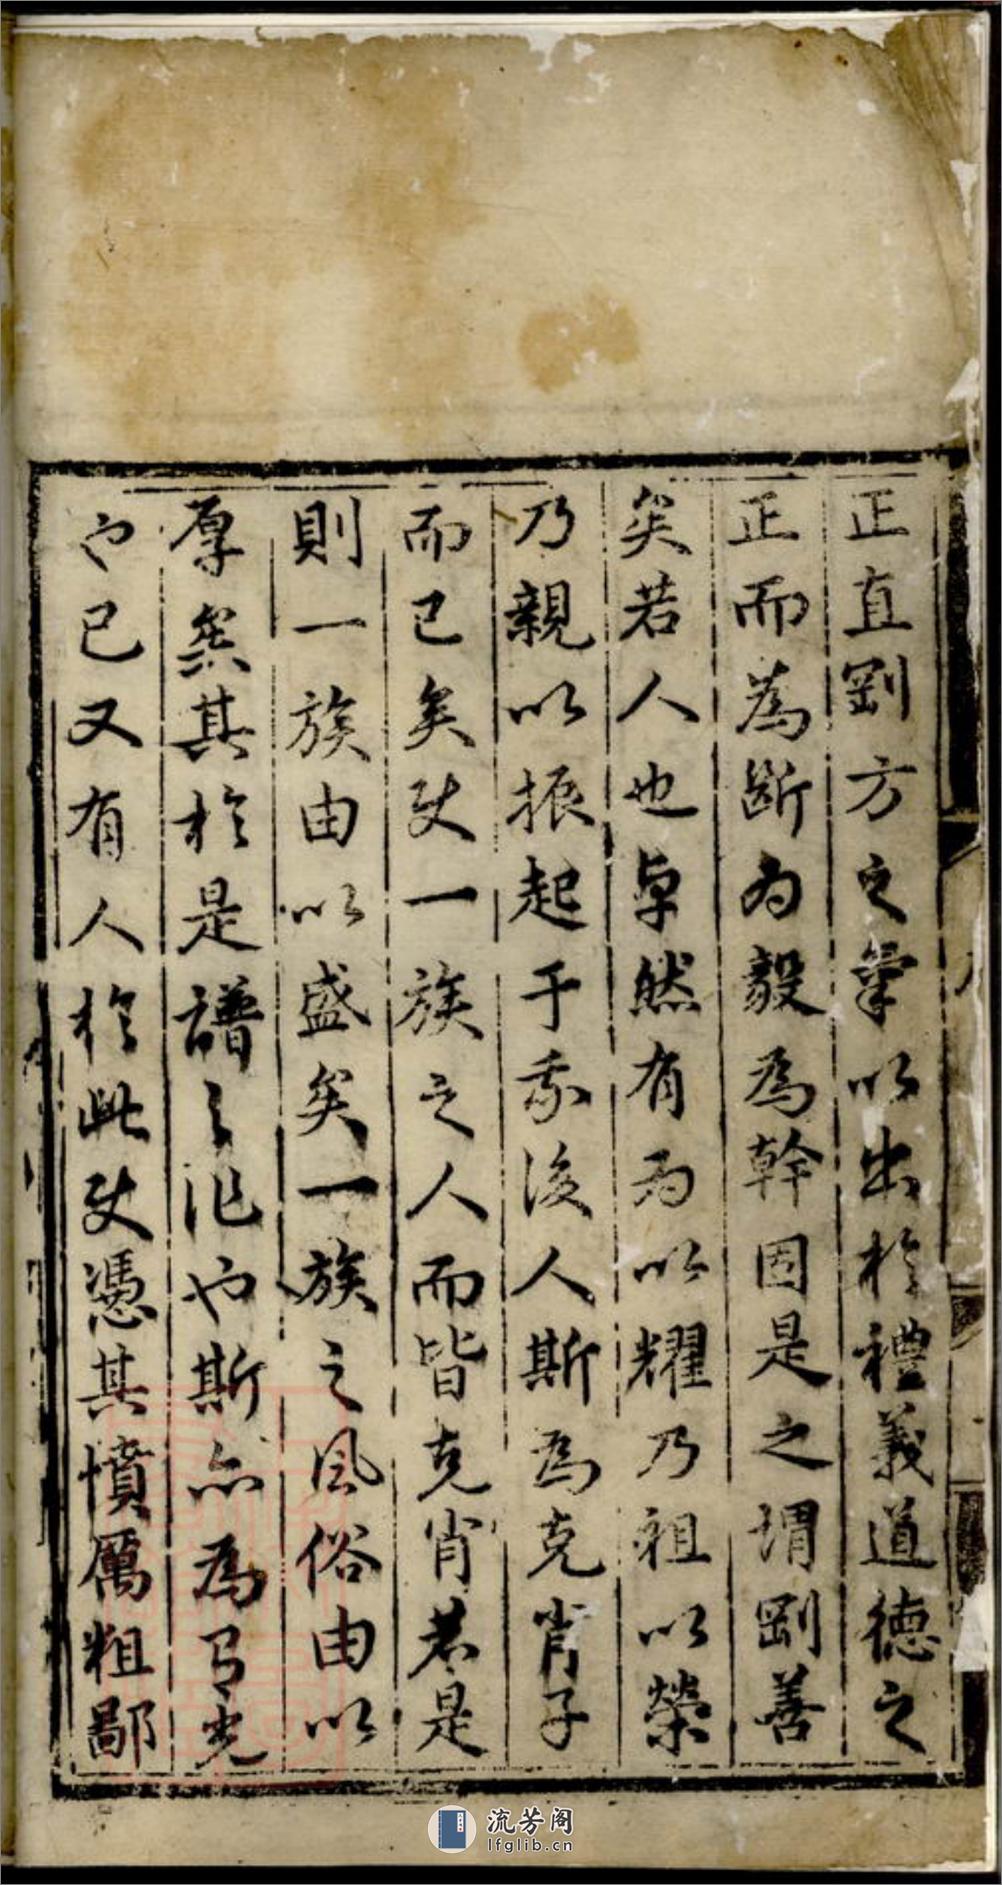 正直剛方之氣以出於禮義道德之
正而為斷為毅為幹固是之謂剛善
矣若人也卓然有為以耀乃祖以榮
乃親以振起于我後人斯為克肖子
而已矣使一族之人而皆克肖若是
則一族由以盛矣一族之風俗由以
厚矣其於是譜之作也斯亦為有光
也已又有人於此使憑其憤厲粗鄙
流芳阁
lfglib.cn